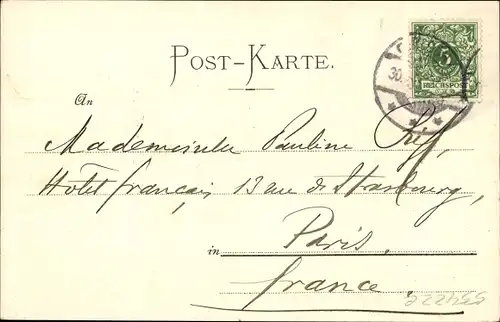 POST-KARTE.
5
REICHSPOST
30.
An
Mademoiselle Pauline
Hôtel français 13 rue de Strasbourg,
in Paris,
France.